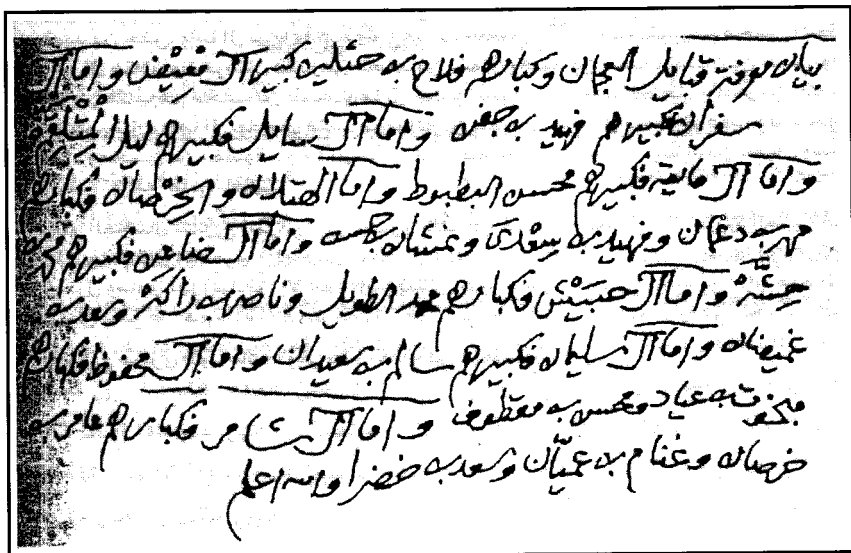 بيان معرفة قبايل العجمان وكبارهم فلاح بن حثلين كبير آل معيض واما آل
سفران فكبيرهم فهيد بن جفن واما آل سايل فكبيرهم ليل
واما آل فكبيرهم محسن البطبوط واما الهتلان والخرصان فكبارهم
بن دعمان وفهيد بن سعدى وغنشان بن واما آل ضاعن فكبيرهم محمد بن
حشَّة واما آل حبيش فكبارهم محمد الطويل وناصر بن راكة وسعد بن
غميضان واما آل سليمان فكبيرهم سالم بن سعيدان واما آل محفوظ فكبارهم
منخوت بن عياد ومحسن بن معطوف واما آل شامر فكبارهم عامر بن
خرصان وغنام بن عميّان وسعد بن خضرا والله اعلم